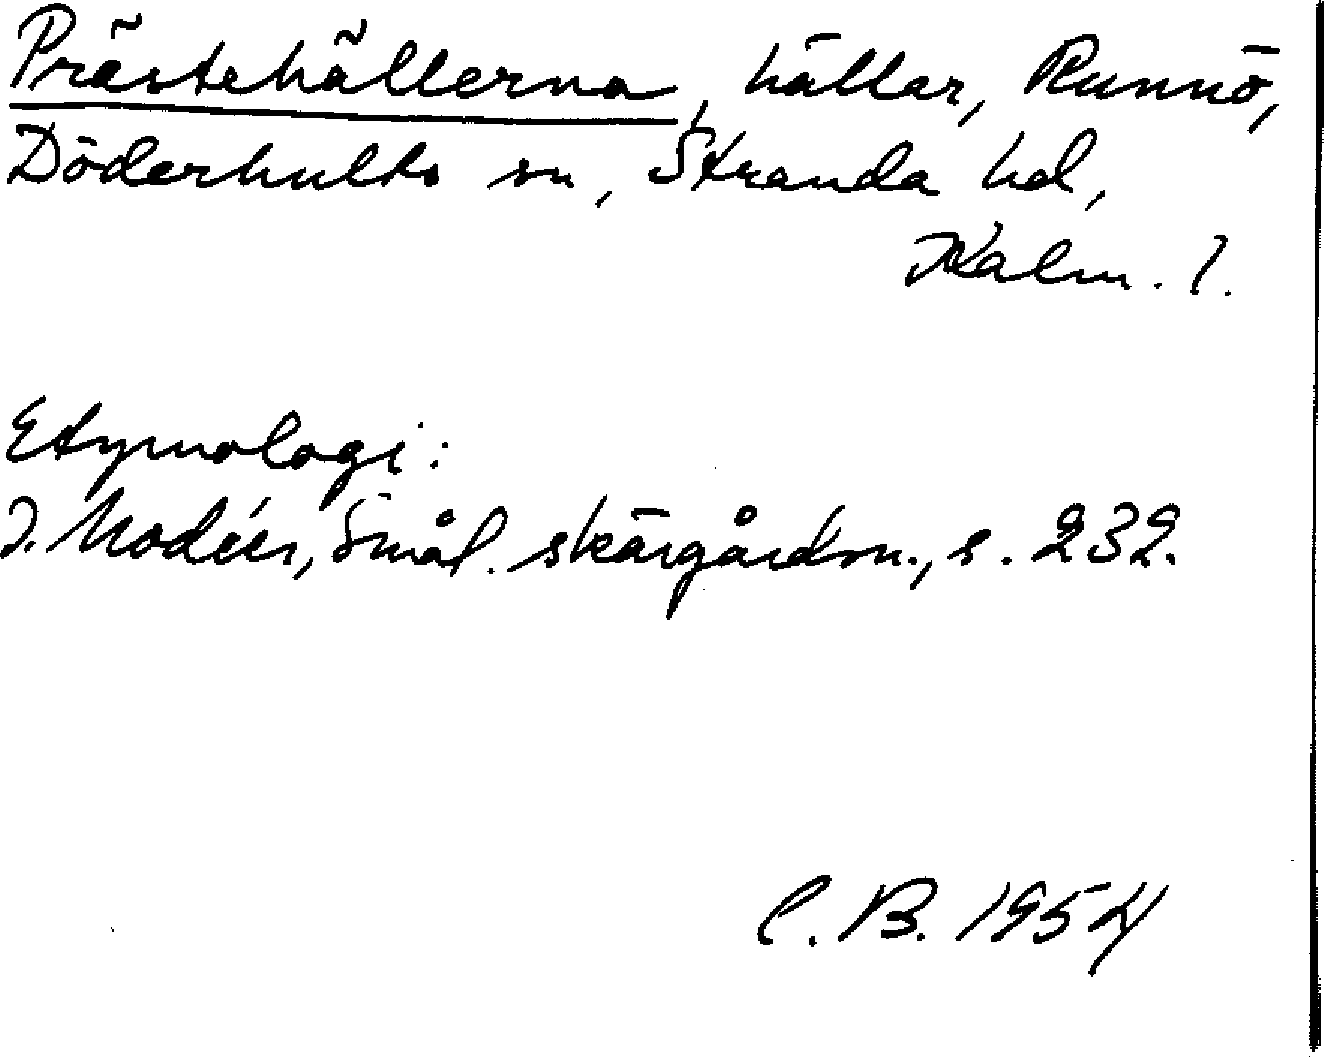 Prästehällerna, hällar, Runnö,
Döderhults sn, Stranda hd,
Kalm. l.
Etymologi:
I. Modéer, Smål. skärgårdsn., s. 232.
C. B. 1954